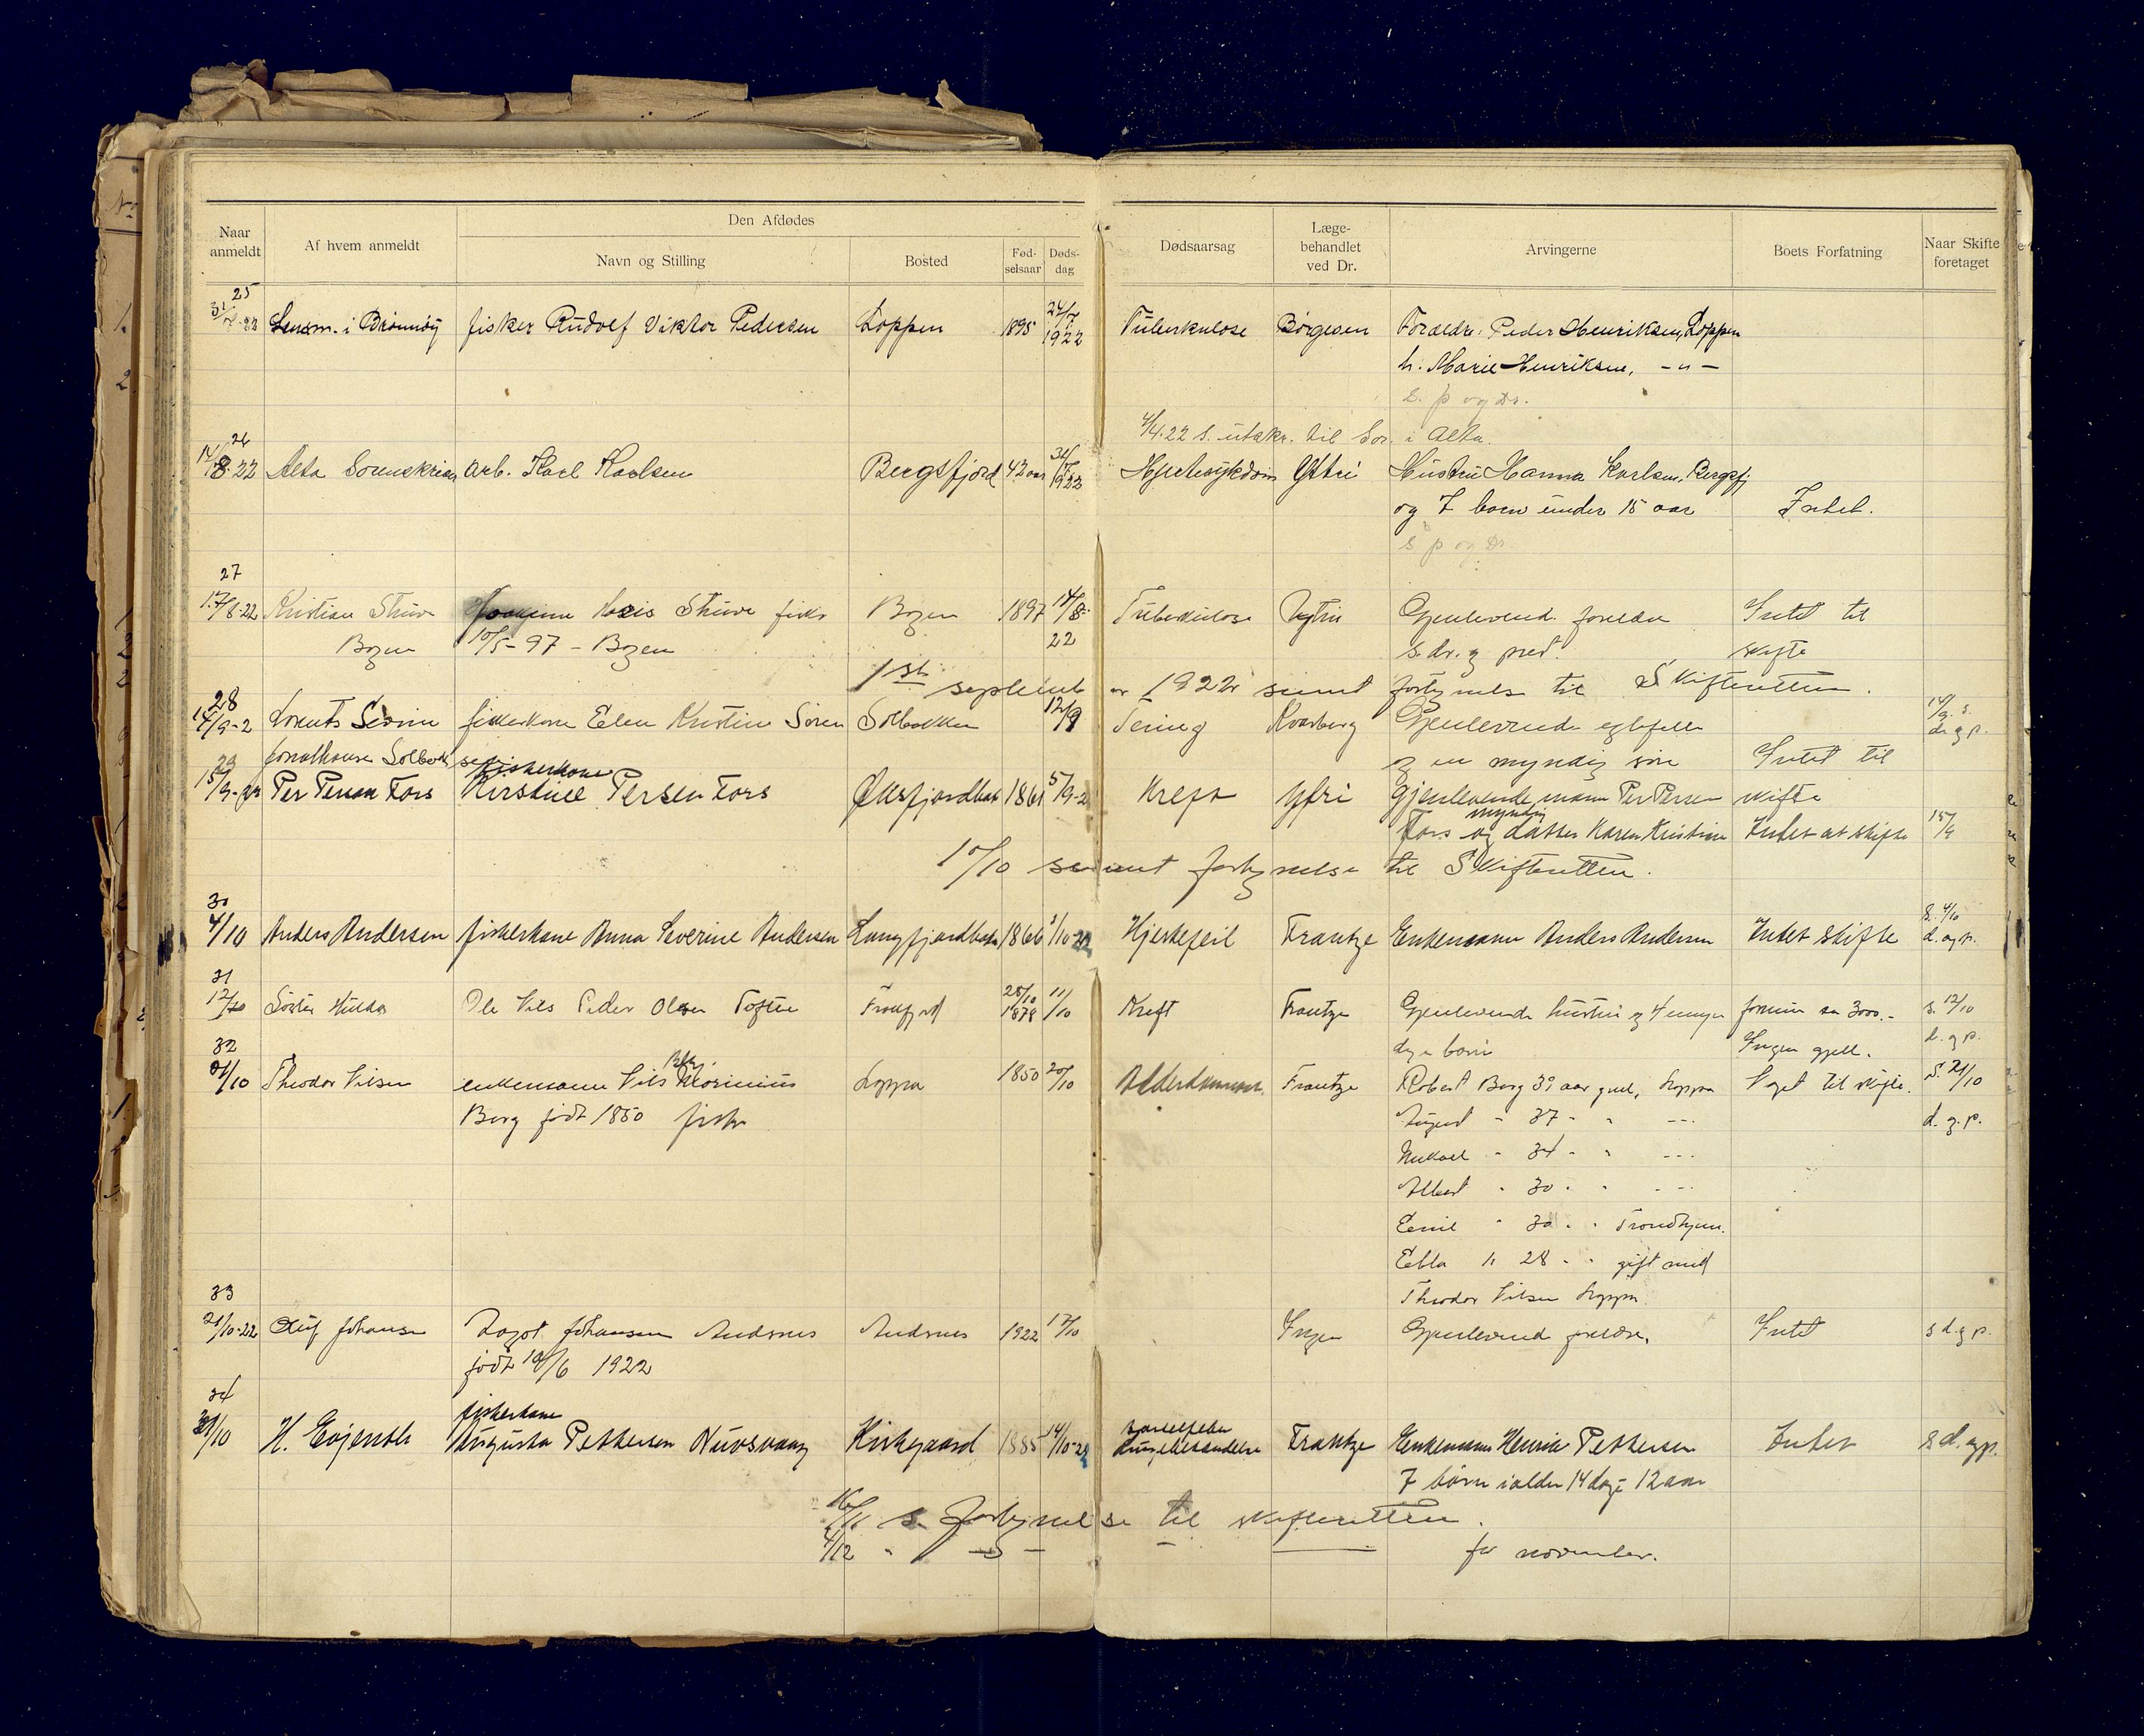 Naar anmeldt
Af hvem anmeldt
Den Afdødes
Navn og Stilling
Bosted
Fød-selsaar
Døds-dag
Dødsaarsag
Læge-behandlet ved Dr.
Arvingerne
Boets Forfatning
Naar Skifte foretaget
25
31/7-22 Lensm. i Brönnöy fisker Rudolf Viktor Pedersen Loppen 1895 24/7 1922 Tuberkulose Börgesen Foraeldre: Peder Henriksen, Loppen
h. Marie Henriksen, -"-
s. p og dr.
4/4.22 s. utskr. til Sor. i Alta.
26
14/8-22 Alta Sorenskriver arb. Karl Karlsen Bergsfjord 42 aar 31/7 1922 Hjertesykdom Ytri Hustru Hanna Karlsen, Bergsfj.
og 7 born under 15 aar Intet.
s p og dr.
27
17/8-22 Kristian Struve Joakim Struve fisker Bogen 1897 14/8-22 Tuberkulose Ytri Gjenlevende foreldre Intet til
Bogen 10/5-97 - Bogen s. dr. og prest. skifte
1ste september 1922 sendt fortegnelse til Skifteretten.
28
14/9-2 Lorents Sevrin fiskerkone Elen Kristine Sören Solbakken 12/9 Tering Kvarberg Gjenlevende egtefelle 14/9. s.
Jonathansen Solbakk sen og en myndig sön Intet til d. og p.
29
15/9-22 Per Persen Fors fiskerkone Kirstine Persen Fors Øksfjordbotn 1861 5/9-2 Kreft Ytri Gjenlevende mann Per Persen skifte
Fors og myndig datter Karen Kristine Intet at skifte 15/9
10/10 sendt fortegnelse til Skifteretten.
30
4/10 Anders Andersen fiskerkone Anna Severine Andersen Langfjordbotn 1866 1/10-22 Hjertefeil Frantze Enkemann Anders Andersen Intet skifte s. 4/10 d. og p.
31
12/10 Hilda Ole Nils Peder Olsen Toften 28/10 1878 11/10 Kreft Frantze Gjenlevende hustru og 4 umyn formue ca 3000.- s. 12/10
dige barn Ingen gjeld. d. og p.
32
21/10 Theodor Nilsen enkemann Nils Morinius Loppa 1850 20/10 Alderdomssv. Frantze Robert Berg 39 aar gml, Loppa Noget til skifte. s. 21/10
Berg födt 1850 fisker August - 37 - " --- d. og p.
Mikael - 34 - " ---
Albert - 30 - " ---
Emil " 30 - " Trondhjem.
Ebba " 28 - " gift med
Theodor Nilsen Loppa
33
21/10-22 Oluf Johansen Johansen Andsnes Andsnes 1922 17/10 Ingen Gjenlevende foreldre. Intet s d. og p.
födt 10/6 1922
34
/10 H. Evjenth fiskerkone Augusta Pettersen Nuvsvaag Kirkegaard 1885 14/10-22 Barselfeber Lungebetændelse Frantze Enkemann Henrik Pettersen Intet s d. og p.
7 börn i alder 14 dage - 12 aar
16/11 s. fortegnelse til skifteretten.
4/12 " - " - for november.